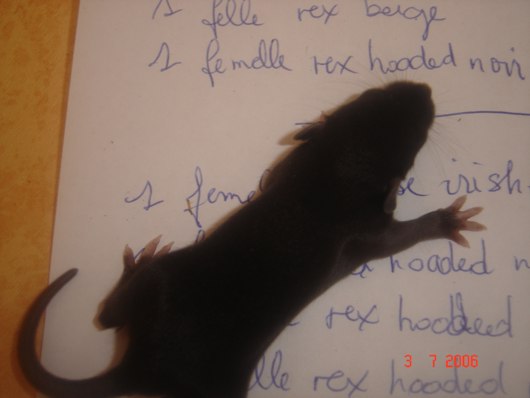 1 felle rex berge
1 femelle rex hooded noir
1 feme irish
hooded n
rex hooded
lle rex hooded
3 7 2006